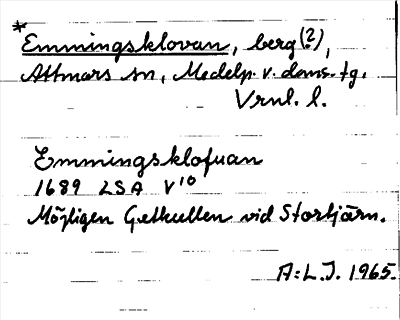 *Emmingsklovan, berg(?),
Attmars sn, Medelp. v. doms. tg.
Vrnl. l.
Emmingsklofuan
1689 LSA V10
Möjligen Getkullen vid Stortjärn.
A:L.J. 1965.